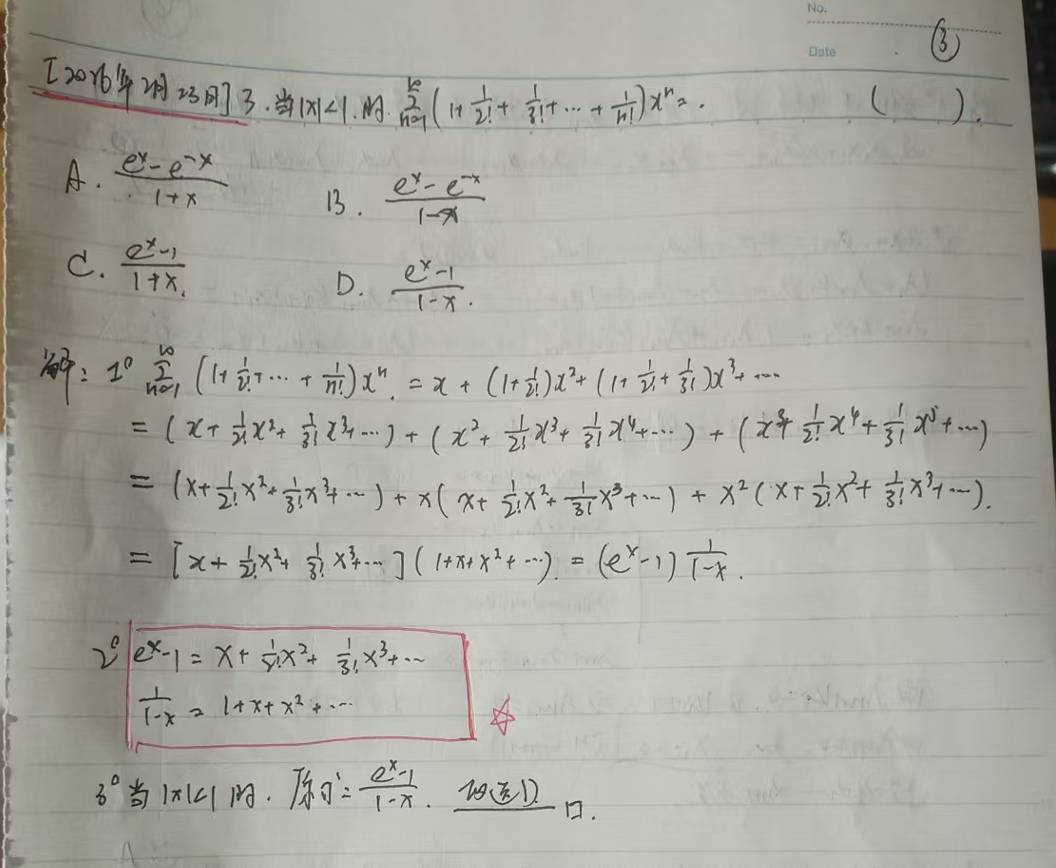 No.
Date
③
[2026年2月23日] 3. 当|x|<1.时. ∑_{n=1}^{∞} (1+1/2!+1/3!+⋯+1/n!)x^n = . ( ).
A. (e^x-e^{-x})/(1+x) B. (e^x-e^{-x})/(1-x)
C. (e^x-1)/(1+x). D. (e^x-1)/(1-x).
解: 1° ∑_{n=1}^{∞} (1+1/2!+⋯+1/n!)x^n. = x+(1+1/2!)x^2+(1+1/2!+1/3!)x^3+⋯
= (x+1/2!x^2+1/3!x^3+⋯)+(x^2+1/2!x^3+1/3!x^4+⋯)+(x^3+1/2!x^4+1/3!x^5+⋯)
= (x+1/2!x^2+1/3!x^3+⋯)+x(x+1/2!x^2+1/3!x^3+⋯)+x^2(x+1/2!x^2+1/3!x^3+⋯).
= [x+1/2!x^2+1/3!x^3+⋯](1+x+x^2+⋯). = (e^x-1) 1/(1-x).
2° e^x-1 = x+1/2!x^2+1/3!x^3+⋯
1/(1-x) = 1+x+x^2+⋯
3° 当|x|<1时. 原式=(e^x-1)/(1-x). 故选D □.